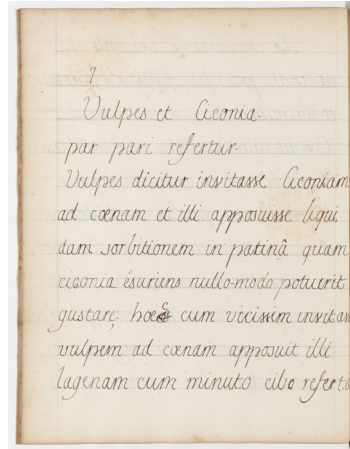 1
Vulpes et Ciconia.
par pari refertur.
Vulpes dicitur invitasse Ciconiam
ad cœnam et illi apposiusse liqui
dam sorbitionem in patinâ quam
ciconia ésuriens nullo-modo potuerit
gustare, cum vicissim invitass
vulpem ad cœnam apposuit illi
lagenam cum minuto cibo